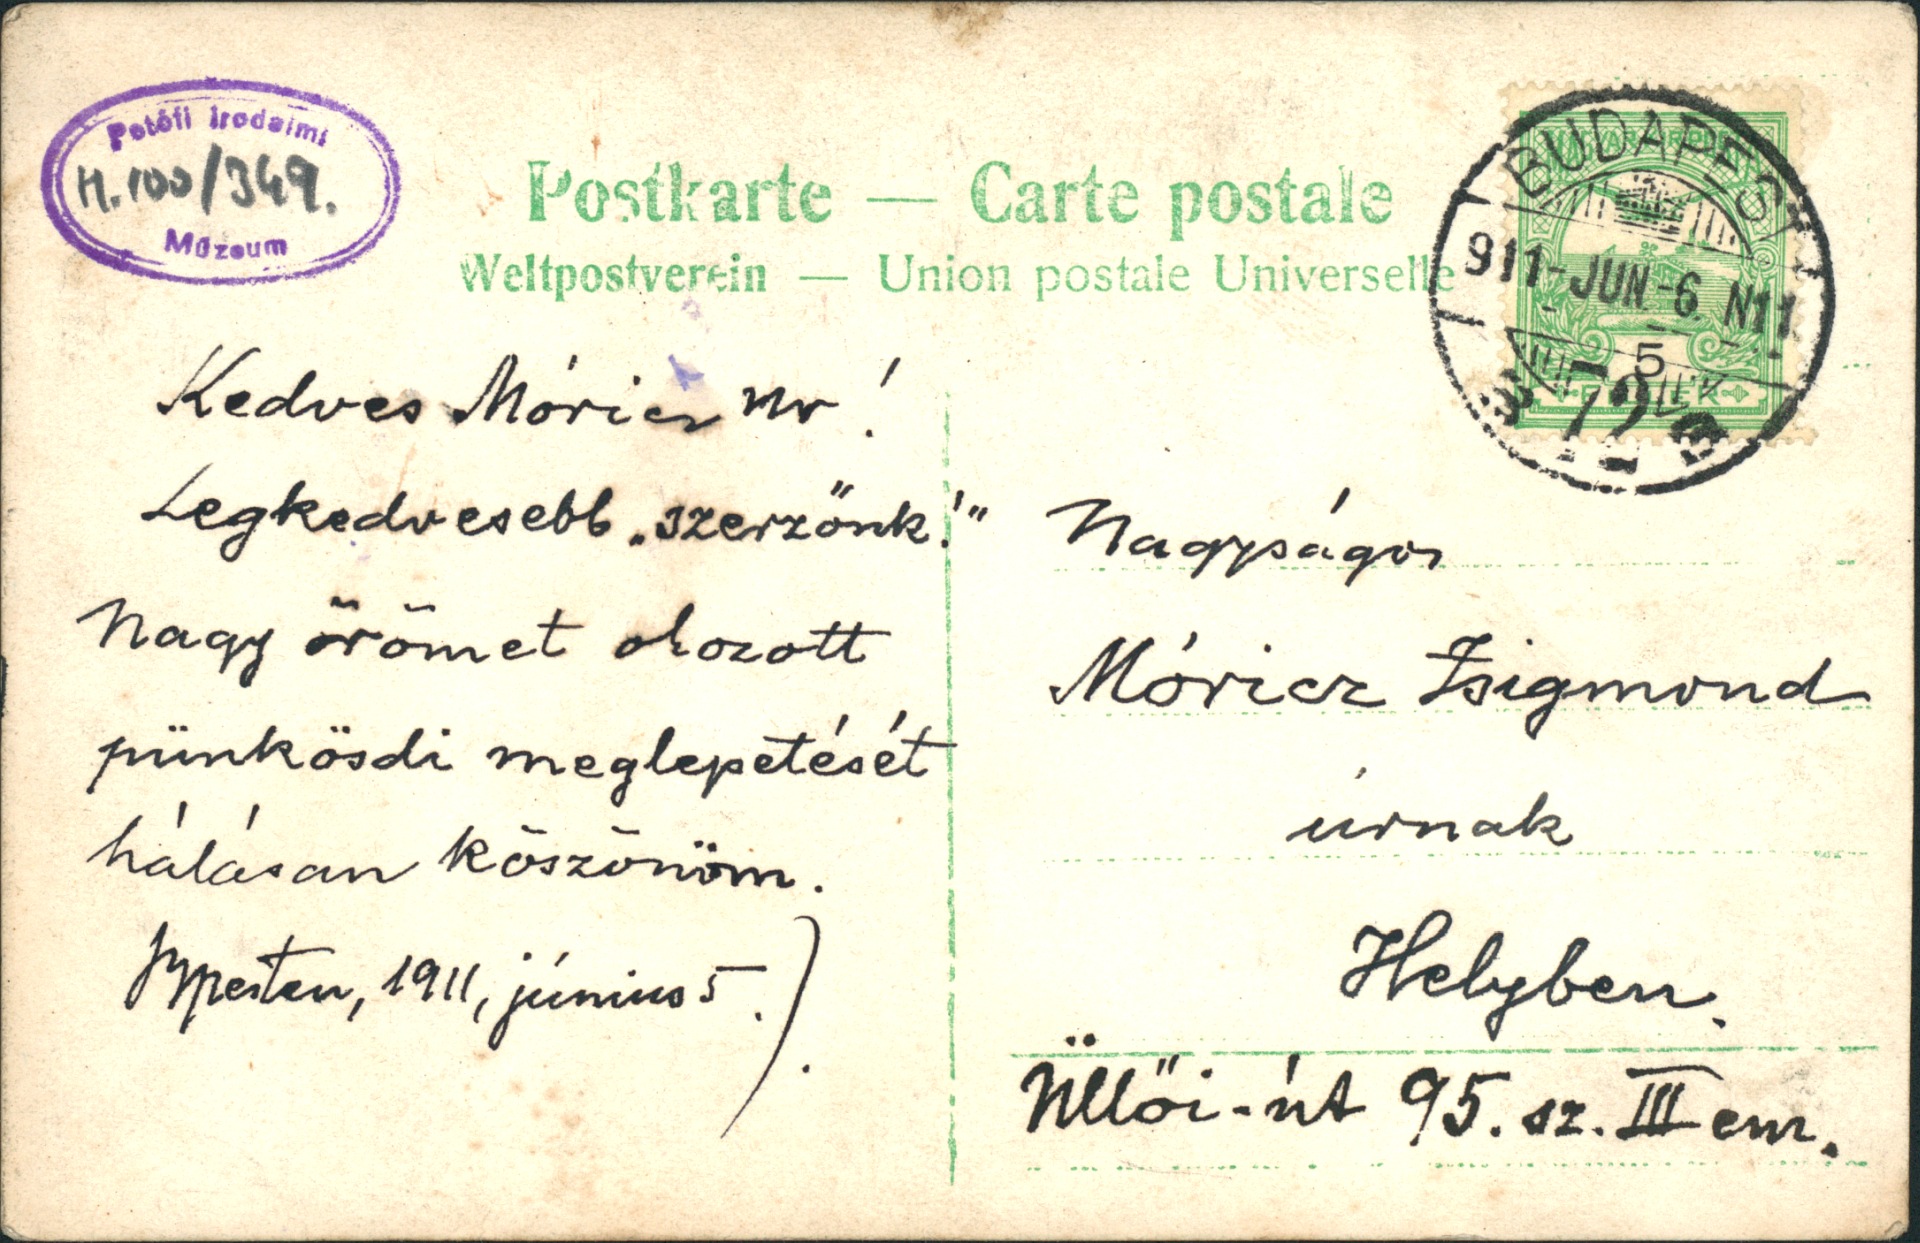 Petőfi Irodalmi
M.100/349.
Múzeum
Postkarte — Carte postale
Weltpostverein — Union postale Universelle
BUDAPEST
911-JUN-6. N11
5
72
Kedves Móricz Ur!
Legkedvesebb „szerzőnk!"
Nagy örömet okozott
pünkösdi meglepetését
hálásan köszönöm.
1911, június 5.
Nagyságos
Móricz Zsigmond
úrnak
Helyben.
Üllői-út 95. sz. III em.